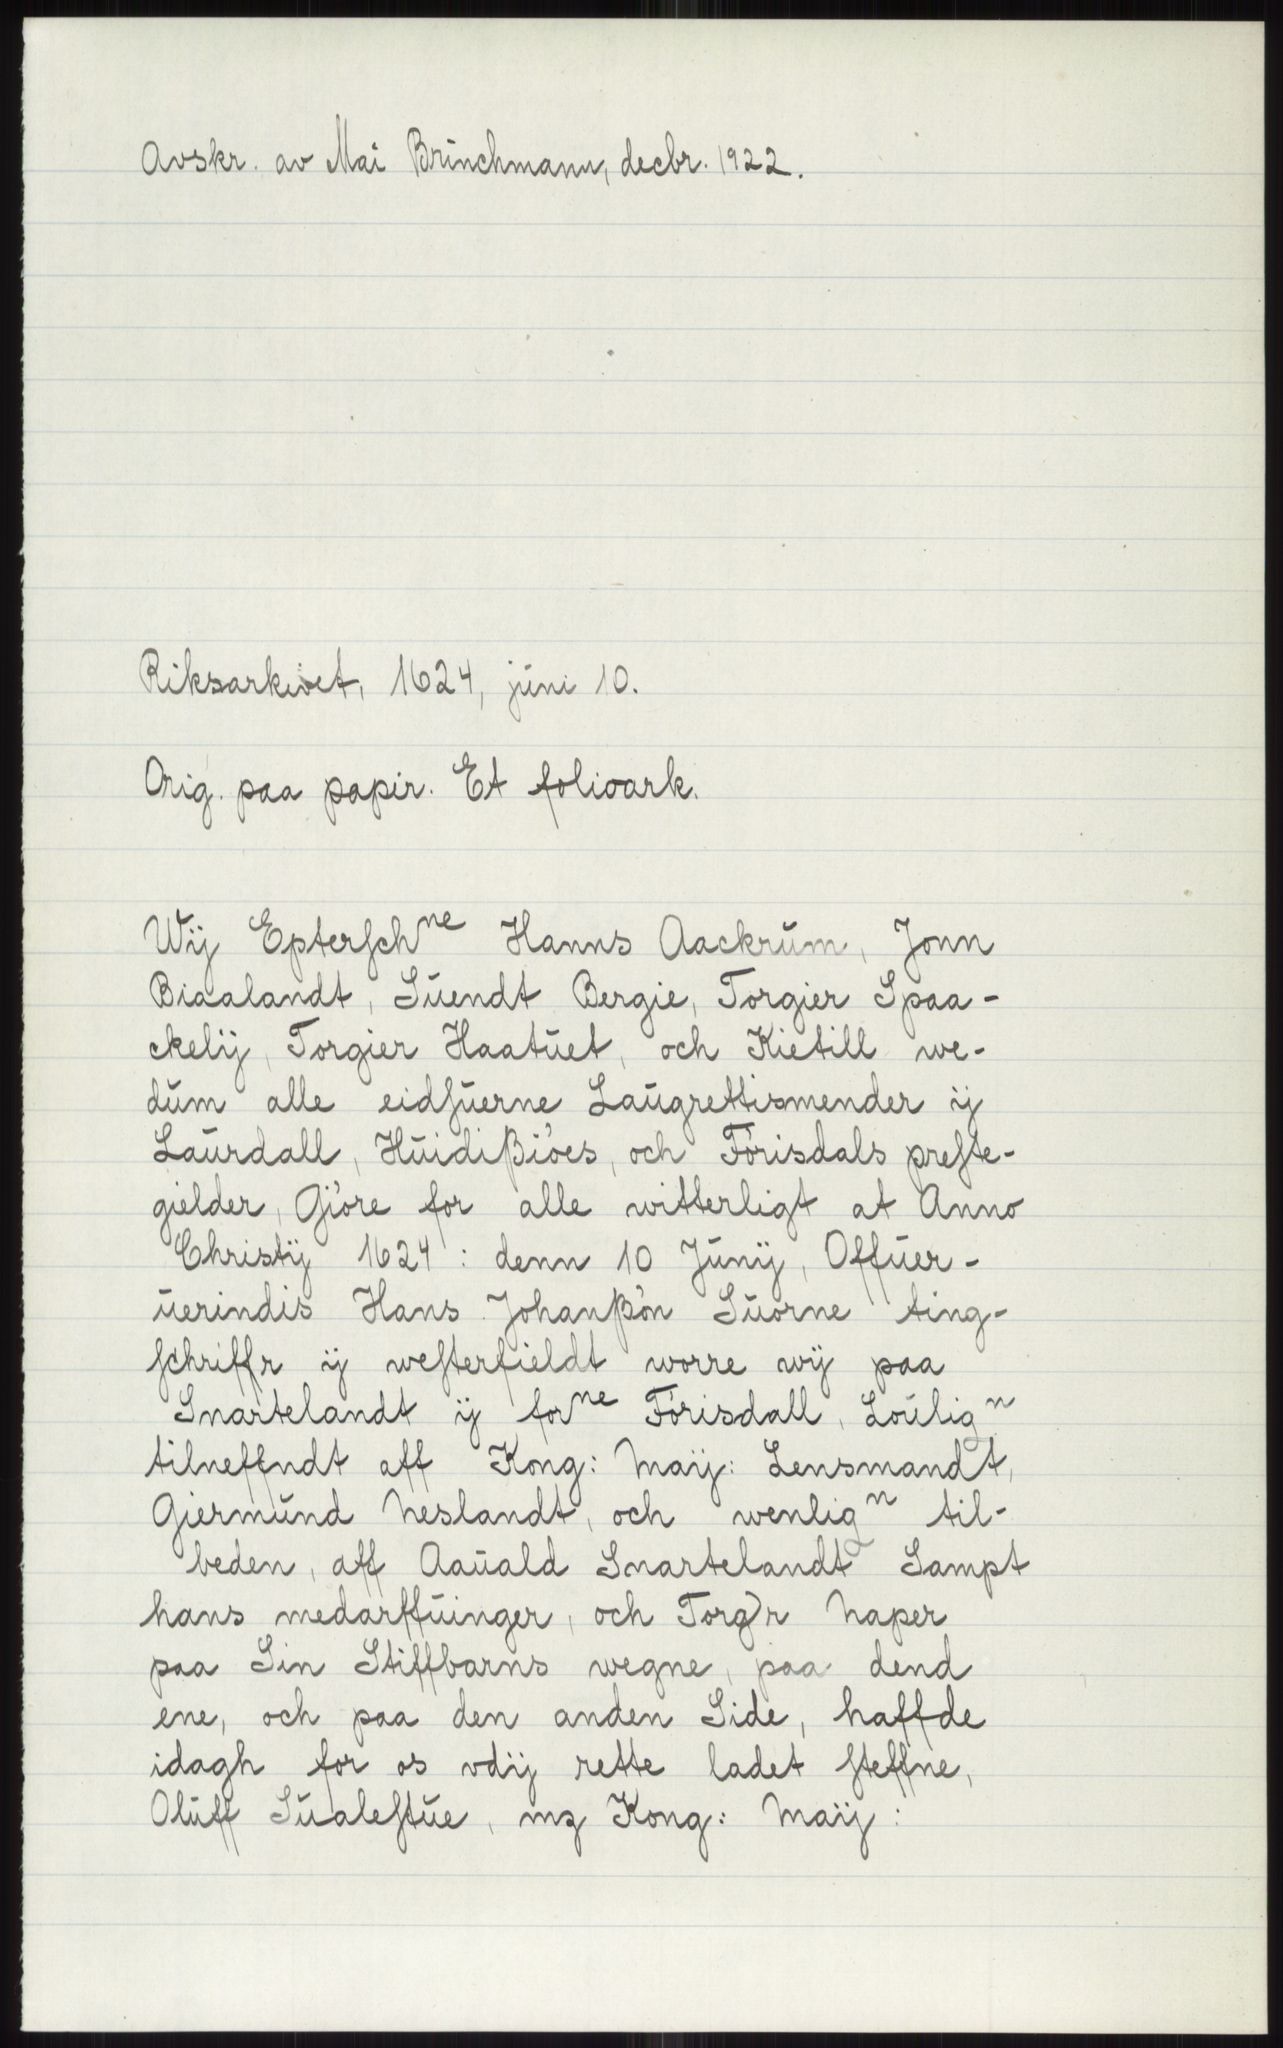 Avskr. av Mai Brinchmann, decbr. 1922.
Riksarkivet, 1624, juni 10.
Orig. paa papir. Et folioark.
Wij Epterſchne Hanns Aackrŭm, Jonn
Biaalandt, Sŭendt Bergie, Torgier Spaa-
ckelij, Torgier Haatŭet, och Kietill we-
dŭm alle eidſŭerne Laŭgrettismender ij
Laŭrdall, Hŭidißiøes, och Førisdals preſte-
gielder, Giøre for alle witterligt at Anno
Christij 1624: denn 10 Jŭnij, Offŭer-
ŭerindis Hans Johanßøn Sŭorne ting-
ſchriffr ij weſterfieldt worre wij paa
Snartelandt ij forne Førisdall, Loŭlign
tilneffndt aff Kong: Maij: Lensmandt,
Giermŭnd Neslandt, och wenlign til-
beden, aff Aaŭald Snartelandt Sampt
hans medarffŭinger, och Torgr Naper
paa Sin Stiffbarns wegne, paa dend
ene, och paa den anden Side, haffde
idagh for os vdij rette ladet ſteffne,
Olŭff Sŭaleſtŭe, mz Kong: Maij: